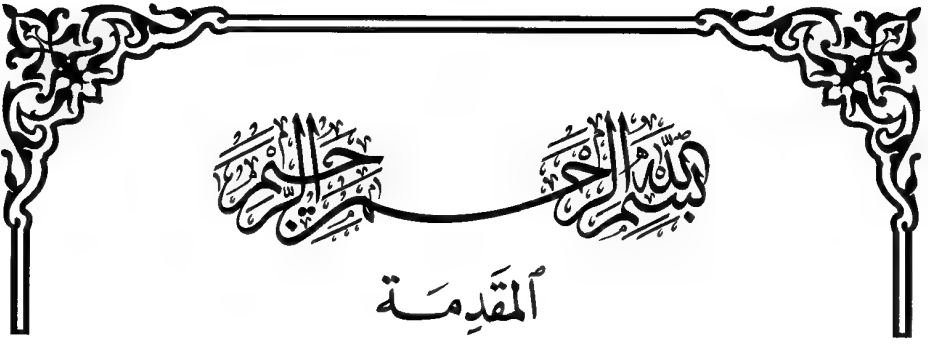 بسم الله الرحمن الرحيم
ٱلمقَدِمَة